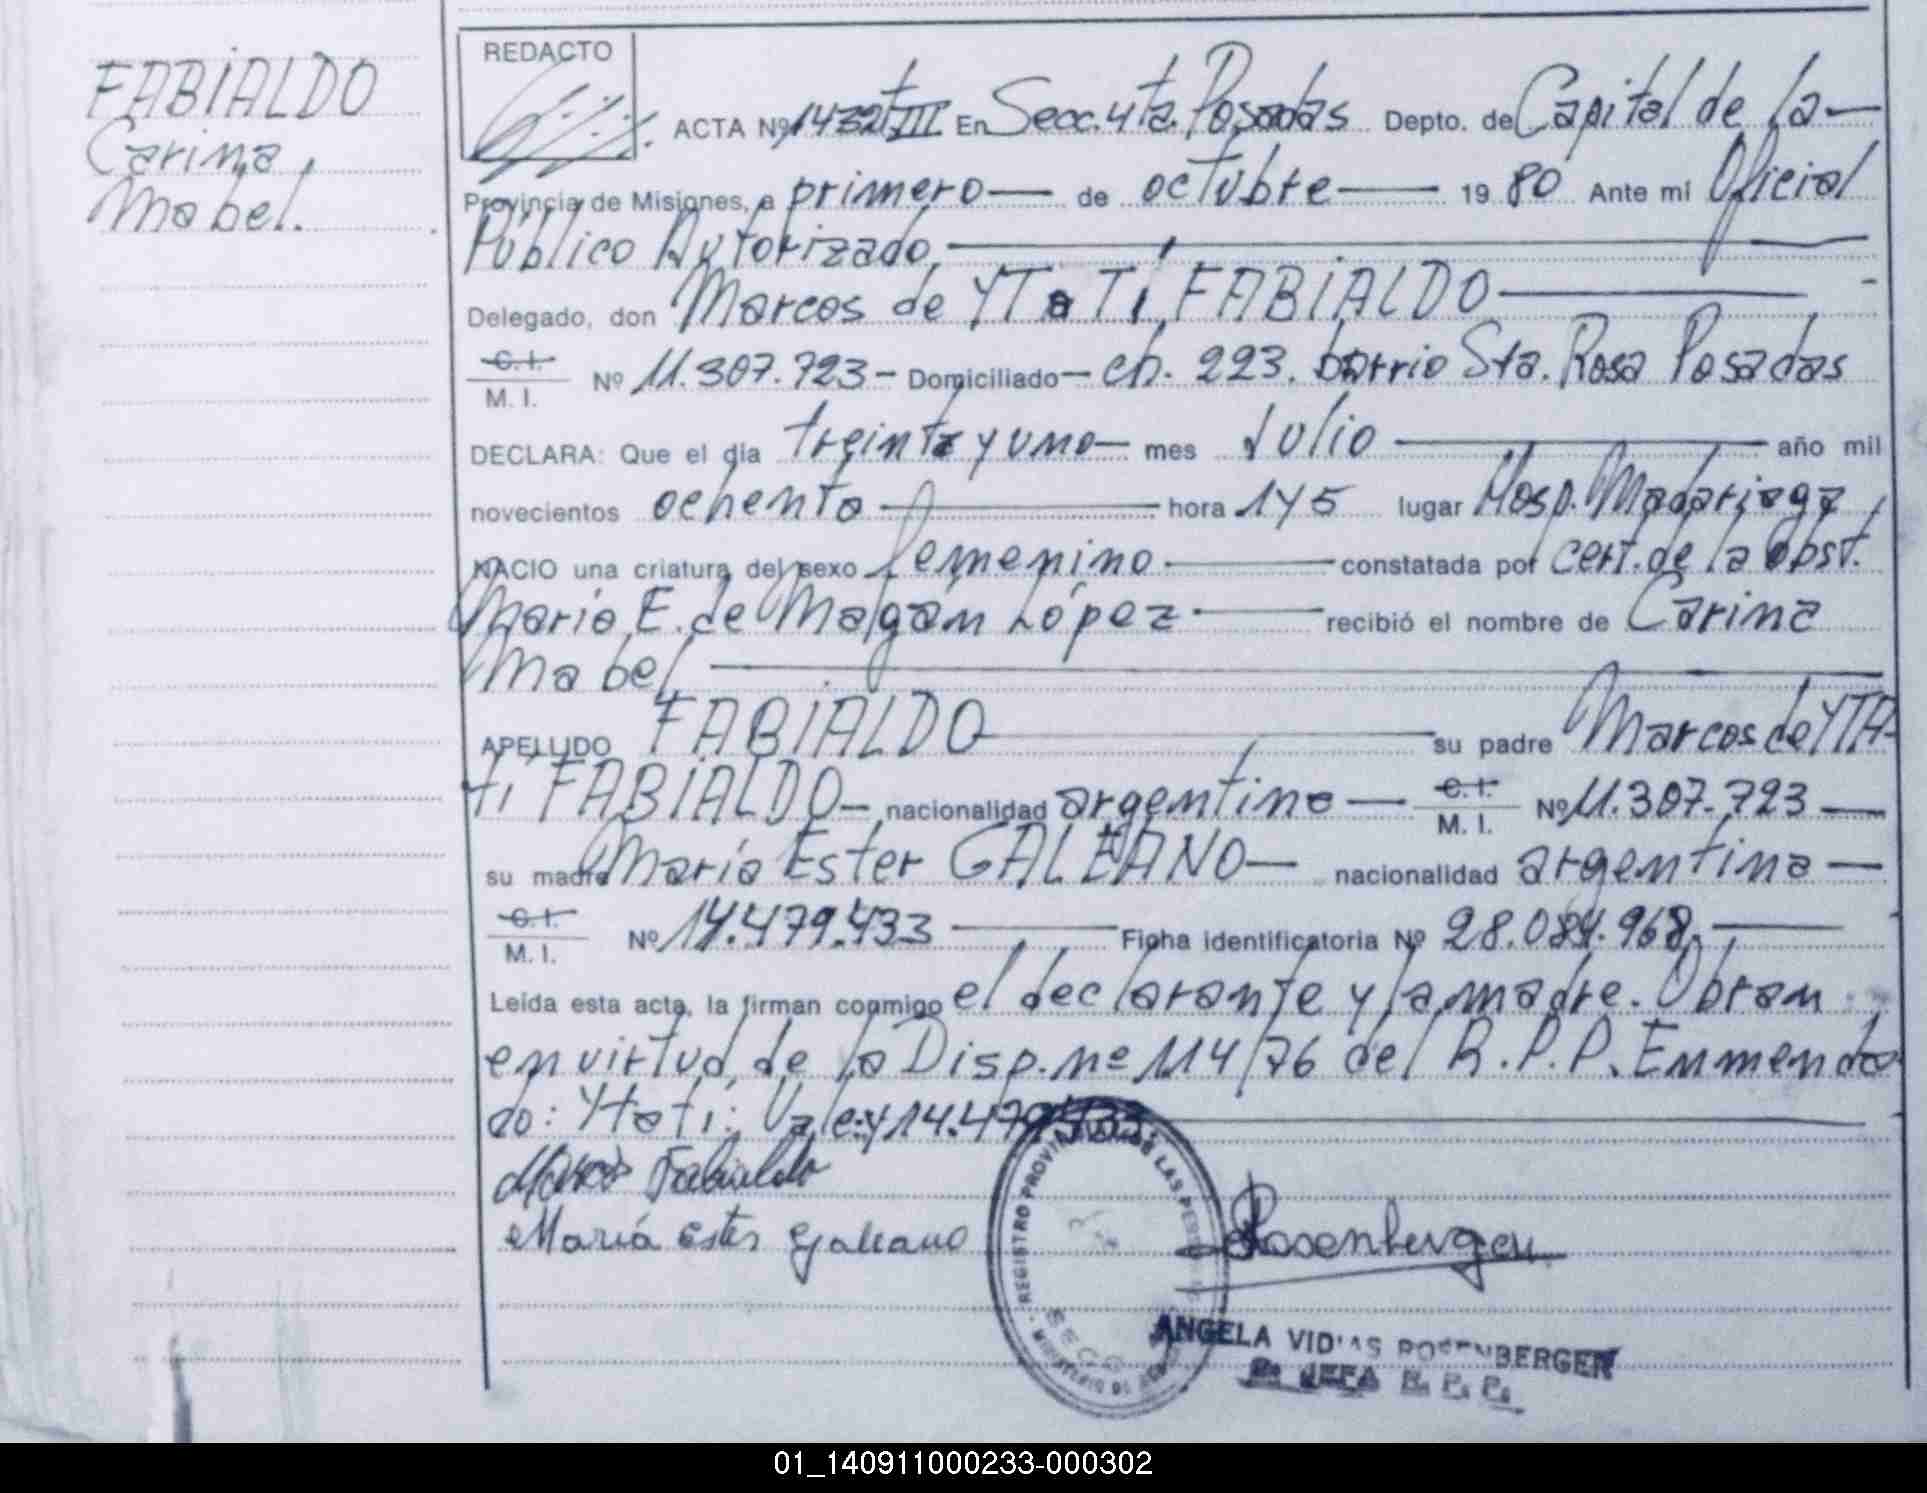 FABIALDO
Carina
Mabel.
REDACTO
ACTA Nº 1432 tº III En Secc. 4ta. Posadas Depto. de Capital de la
Provincia de Misiones, a primero de octubre 1980 Ante mi Oficial
Público Autorizado
Delegado, don Marcos de YTaTí FABIALDO
C.I. M. I. Nº 11.307.723 - Domiciliado ch. 223. barrio Sta. Rosa Posadas
DECLARA: Que el día treinta y uno mes Julio año mil
novecientos ochenta hora 145 lugar Hosp. Madariaga
NACIO una criatura del sexo femenino constatada por cert. de la obst.
María E. de Malgán López recibió el nombre de Carina
Mabel
APELLIDO FABIALDO su padre Marcos de YTA-
tí FABIALDO nacionalidad argentino C.I. M. I. Nº 11.307.723
su madre María Ester GALEANO nacionalidad argentina
C.I. M. I. Nº 14.479.433 Ficha identificatoria Nº 28.084.968.
Leída esta acta, la firman conmigo el declarante y la madre. Obran
en virtud de la Disp. nº 114/76 del R.P.P. Enmenda
do: Ytatí: Vale: y 14.479.433.
Marcos Fabialdo
María Ester Galeano
Rosenberger
REGISTRO PROVINCIAL DE LAS PERSONAS
SECC.
ANGELA VIDIAS ROSENBERGER
JEFA R. P. P.
01_140911000233-000302